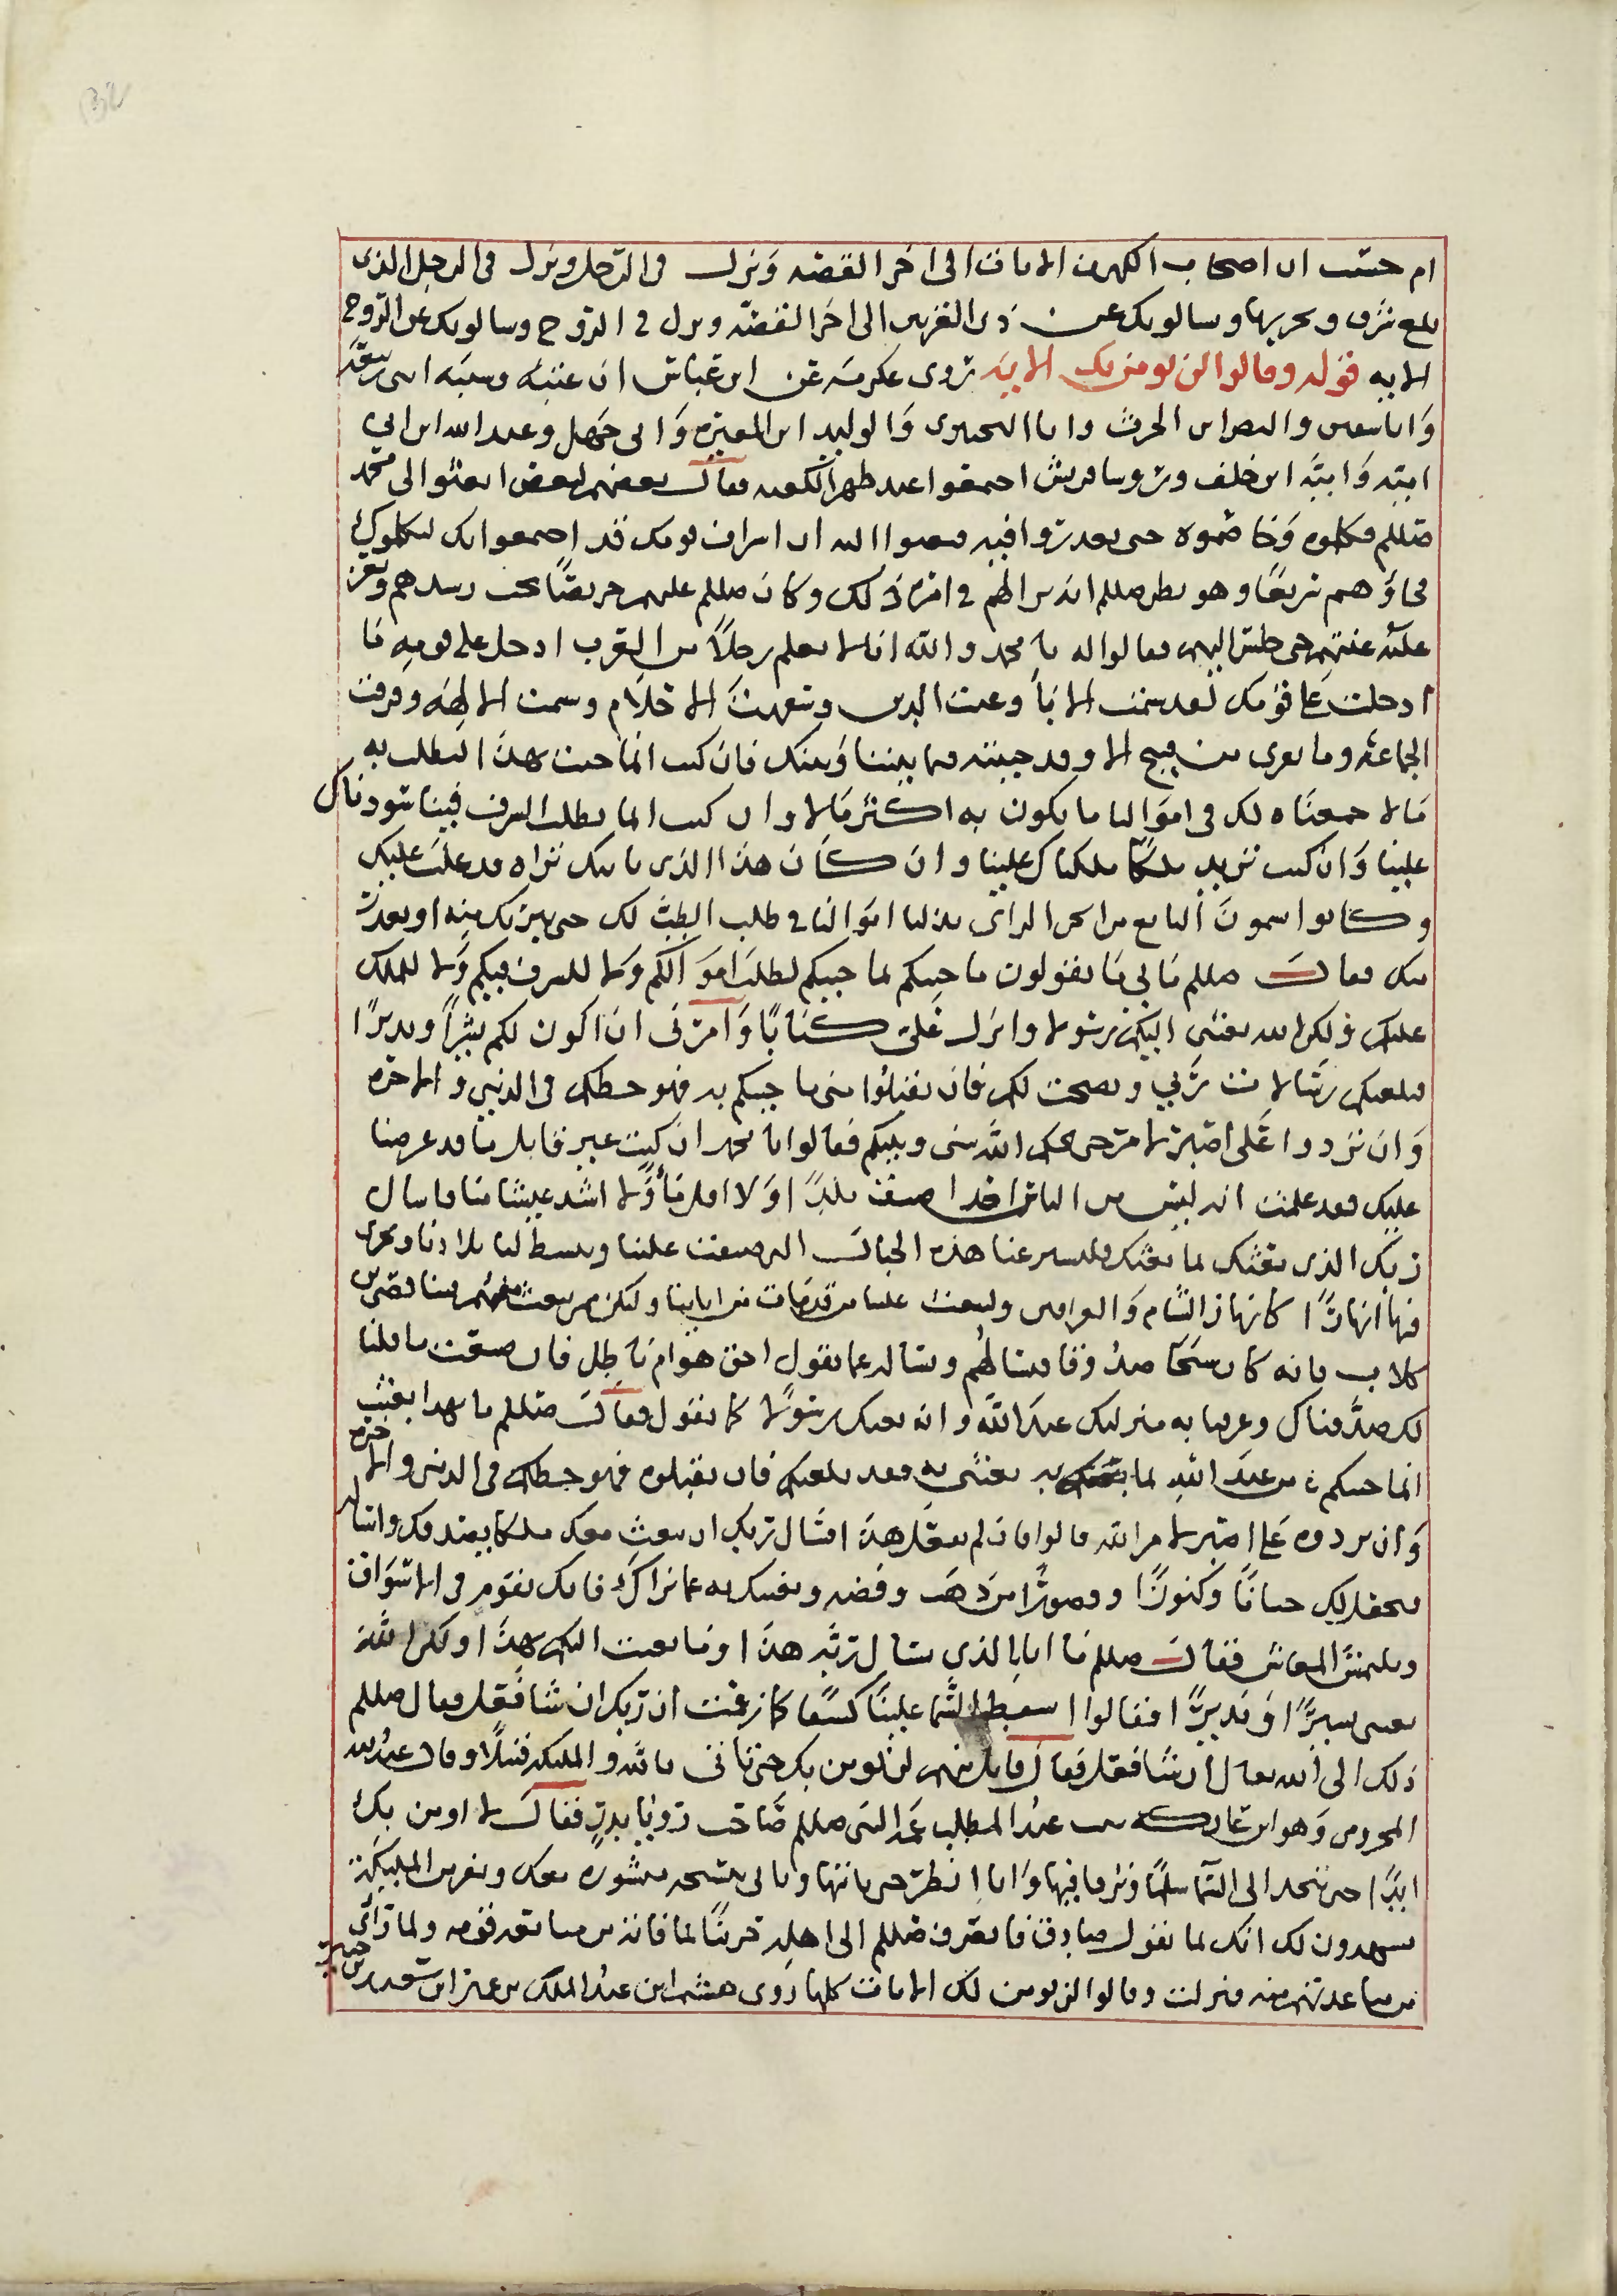 ام حسبت ان اصحاب الكهف الايات الى اخر القصه ونزل في الرجل ونزل في الرجل الذي
بلغ شرق وغربها وسالونك عن ذي القرنين الى اخر القصه ونزل في الروح وسالونك عن الروح
الايه قوله وقالوا لن نومن لك الايه روى عكرمه عن ابن عباس ان عتبه وشيبه ابنى ربيعه
وابا سفين والنضر ابن الحرث وابا البحترى والوليد ابن المغيره وابى جهل وعبد الله ابن ابي
اميه واميه ابن خلف وروسا قريش اجتمعوا عند ظهر الكعبه فقال بعضهم لبعض ابعثوا الى محمد
صللم فكلموه وخاصموه حتى تعذروا فيه فبعثوا اليه ان اشراف قومك قد اجتمعوا لك ليكلموك
فجاؤهم سريعا وهو يظن صللم انه بدا لهم في امره ذلك وكان صللم عليهم حريصا يحب رشدهم ويعز
عليه عنتهم حتى جلس اليهم فقالوا له يا محمد والله انا لا نعلم رجلا من العرب ادخل على قومه ما
ادخلت على قومك لقد شتمت الابا وعبت الدين وسفهت الاحلام وشتمت الالهه وفرقت
الجماعه وما بقى من قبيح الا وقد جيته فيما بيننا وبينك فان كنت انما جيت بهذا لتطلب به
مالا جمعناه لك في اموالنا ما يكون به اكثر مالا وان كنت انما تطلب الشرف فينا سودناك
علينا وان كنت تريد ملكا ملكناك علينا وان كان هذا الذى ياتيك تراه قد غلب عليك
وكانوا يسمون التابع من الجن الرأى بذلنا اموالنا في طلب الطب لك حتى نبريك منه او نعذر
فيك فقال صللم ما بي ما تقولون ما جيتكم لما جيتكم لطلب اموالكم ولا للشرف فيكم ولا للملك
عليكم ولكن الله بعثنى اليكم رسولا وانزل على كتابا وامرنى ان اكون لكم بشيرا ونذيرا
فبلغتكم رسالات ربي ونصحت لكم فان تقبلوا منى ما جيتكم به فهو حظكم في الدنيي والاخره
وان تردوا على اصبر لامر حتى يحكم الله بينى وبينكم فقالوا يا محمد ان كنت غير قابل منا ما قد عرضنا
عليك فقد علمت انه ليس من الناس احدا اضيق بلدا ولا اقل مأ ولا اشد عيشا منا فاسال
ربك الذى بعثك لما بعثك فليسير عنا هذه الجبال التي ضيقت علينا ويبسط لنا بلادنا ويجرى
فيها انهارا كانهار الشام والعراق وليبعث علينا من قد مات من ابائنا وليكن من يبعث منهم فينا قصى بن
كلاب فانه كان شيخا صدوقا فنسالهم ونساله عما تقول احق هو ام باطل فان صنعت ما قلنا
لك صدقناك وعرفنا به منزلتك عند الله وانه بعثك رسولا كما تقول فقال صللم ما بهذا بعثت
انما جيتكم من عند الله لما بعثنى به فقد بلغتكم فان تقبلوه فهو حظكم في الدنيى والاخره
وان تردوه على اصبر لامر الله قالوا فان لم تفعل هذا فسال ربك ان يبعث معك ملكا يصدقك واساله
يجعل لك جنانا وكنوزا وقصورا من ذهب وفضه ويغنيك به عما نراك فانك تقوم في الاسواق
وتلتمس المعاش فقال صللم ما انا بالذى يسال ربه هذا وما بعثت اليكم بهذا ولكن الله
بعثنى بشيرا ونذيرا فقالوا اسقط السما علينا كسفا كما زعمت ان ربك ان شا فعل فقال صللم
ذلك الى الله تعالى ان شا فعل فقال قايل منهم لن نومن بك حتى تاتى بالله والمليكه قبيلا وقال عبد الله
المخزومى وهو ابن عاتكه بنت عبد المطلب عمه النبى صللم فقال لا اومن بك
ابدا حتى تتخذ الى السما سلما وترقا فيها وانا انظر حتى تاتيها وتاتى بنسخه منشوره معك ونفر من المليكه
يشهدون لك انك لما تقول صادق فانصرف صللم الى اهله حزينا لما فاته من مساعد قومه ولما راى
من مباعدتهم منه فنزلت وقالوا لن نومن لك الايات كلها روى هشيم ابن عبد الملك بن عمير ابن سعيد بن جبير